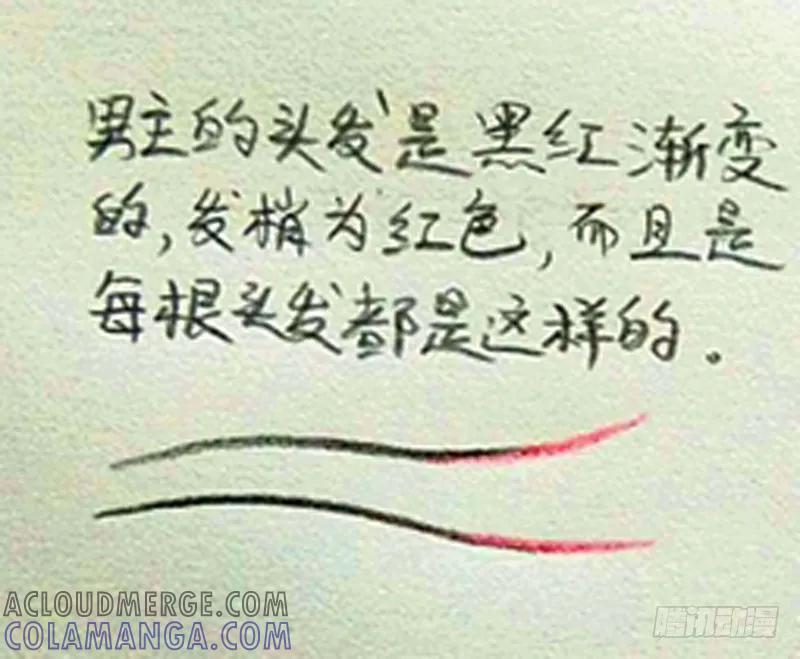 男主的头发是黑红渐变
的,发梢为红色,而且是
每根头发都是这样的。
ACLOUDMERGE.COM
COLAMANGA.COM
腾讯动漫